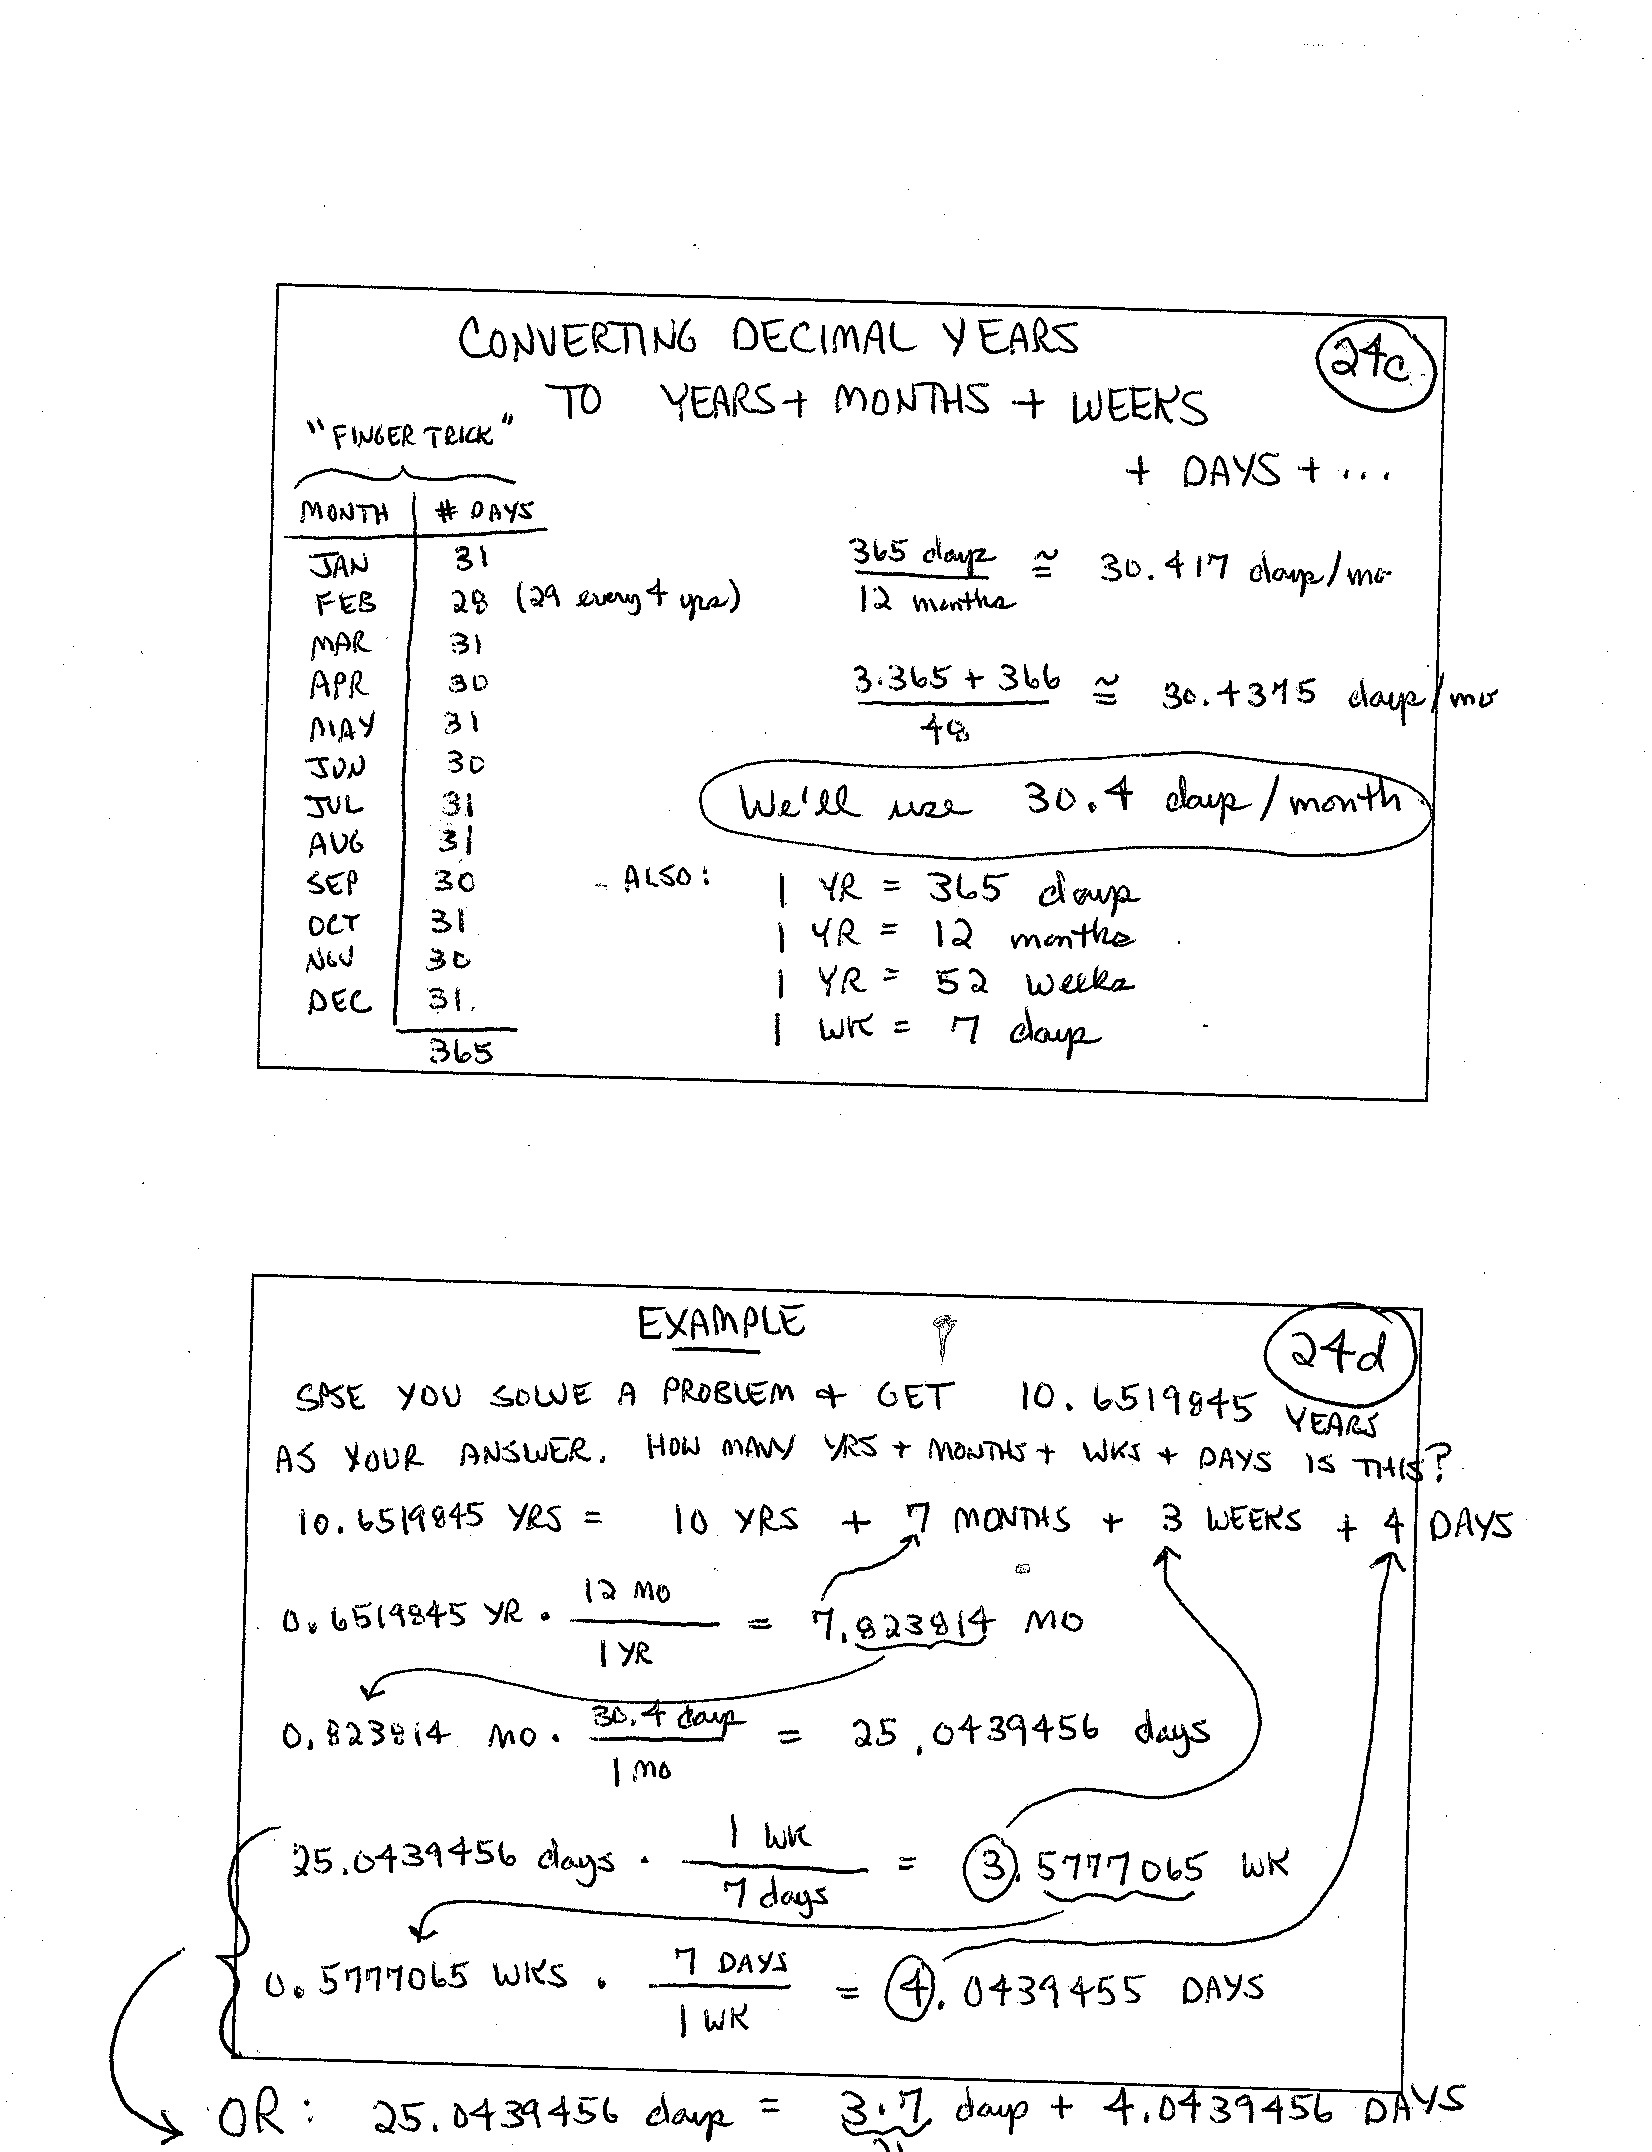 CONVERTING DECIMAL YEARS
24c
TO YEARS + MONTHS + WEEKS
+ DAYS + ...
"FINGER TRICK"
MONTH # DAYS
JAN 31
FEB 28 (29 every 4 yrs)
MAR 31
APR 30
MAY 31
JUN 30
JUL 31
AUG 31
SEP 30
OCT 31
NOV 30
DEC 31.
365
365 days / 12 months ≅ 30.417 days/mo
3·365 + 366 / 48 ≅ 30.4375 days/mo
We'll use 30.4 days/month
ALSO: 1 YR = 365 days
1 YR = 12 months
1 YR = 52 weeks
1 WK = 7 days
EXAMPLE
24d
SPSE YOU SOLVE A PROBLEM + GET 10.6519845 YEARS
AS YOUR ANSWER. HOW MANY YRS + MONTHS + WKS + DAYS IS THIS?
10.6519845 YRS = 10 YRS + 7 MONTHS + 3 WEEKS + 4 DAYS
0.6519845 YR · 12 MO / 1 YR = 7.823814 MO
0.823814 MO · 30.4 days / 1 MO = 25.0439456 days
25.0439456 days · 1 WK / 7 days = 3.5777065 WK
0.5777065 WKS · 7 DAYS / 1 WK = 4.0439455 DAYS
OR: 25.0439456 days = 3·7 days + 4.0439456 DAYS